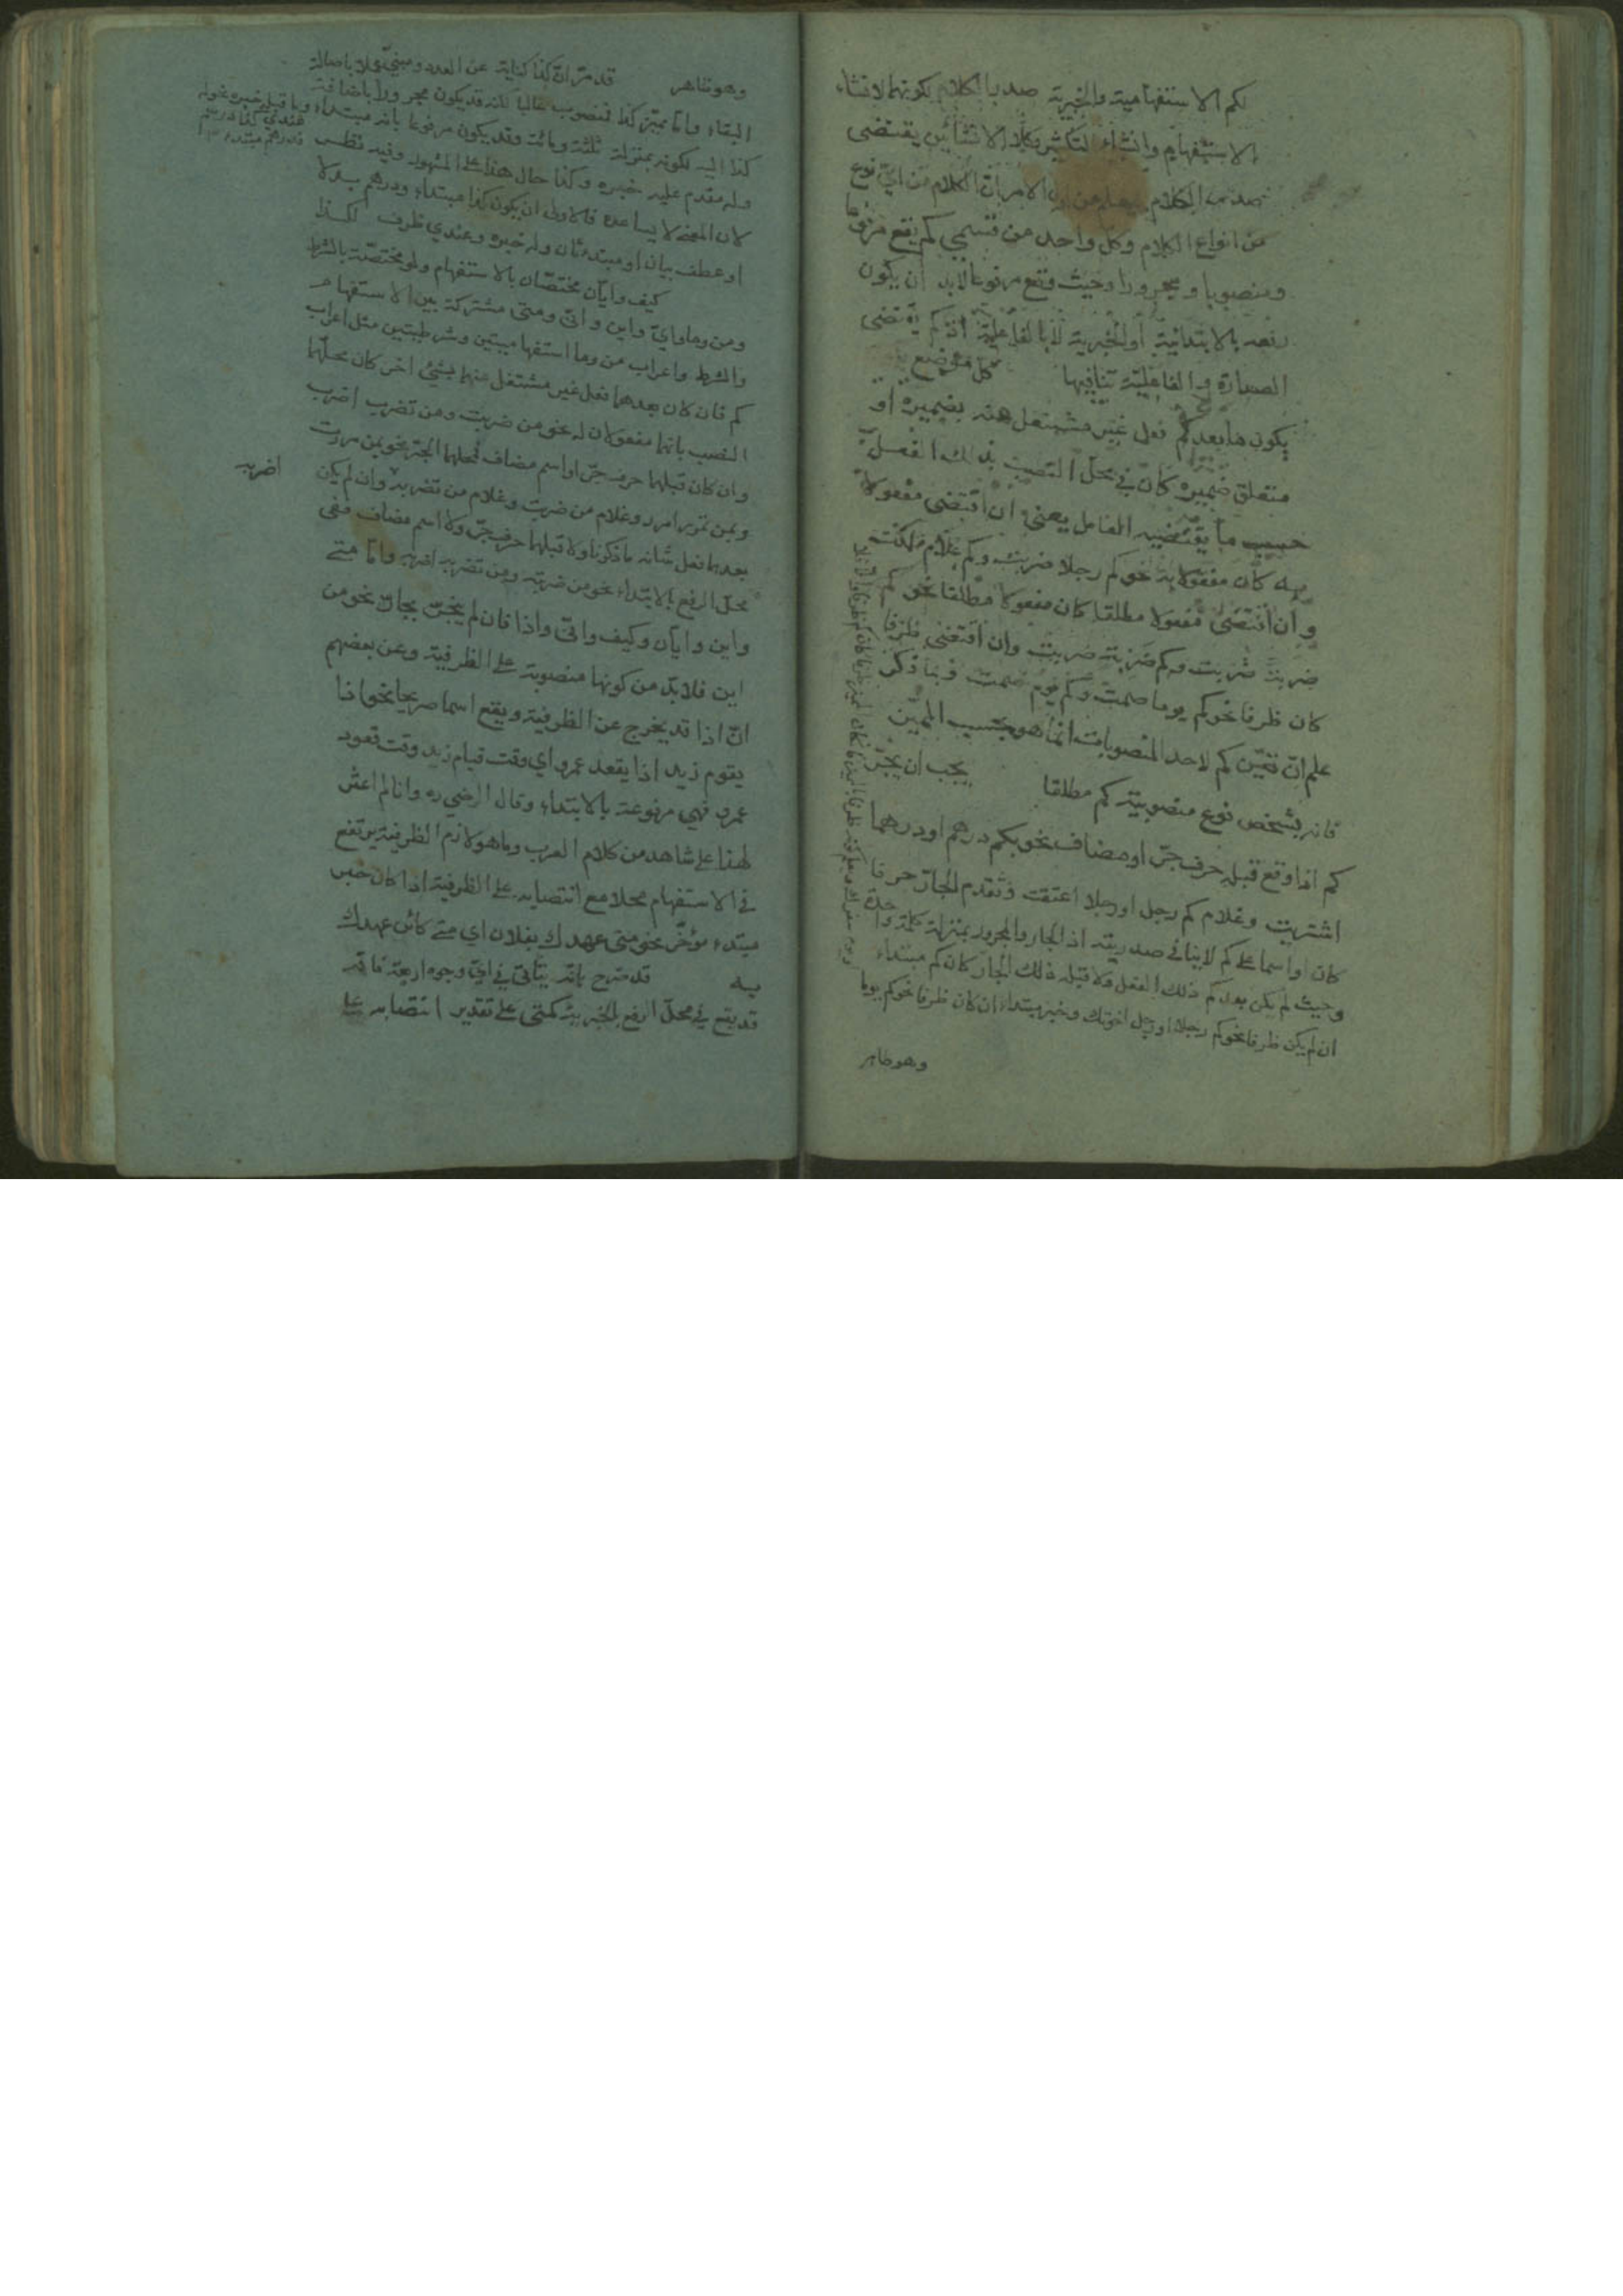 لكم الاستفهامية والخبرية صدر الكلام لكونهما لانشاء
الاستفهام وانشاء التكثير وكلا الانشائين يقتضى
صدر الكلام من اول الامر ان الكلام من اي نوع
من انواع الكلام وكل واحد من قسمي كم يقع مرفوعا
ومنصوبا ومجرورا وحيث وقع مرفوعا لابد ان يكون
رفعه بالابتدائية او الخبرية لا بالفاعلية اذ كم يقتضى
الصدارة والفاعلية تنافيها كل موضع
يكون ما بعد كم فعل غير مشتغل عنه بضميره او
متعلق ضميره كان في محل النصب بذلك الفعل
حسب ما يقتضيه العامل يعني ان اقتضى مفعولا
به كان مفعولا به نحو كم رجلا ضربت وكم غلام ملكت
وان اقتضى مفعولا مطلقا كان مفعولا مطلقا نحو كم
ضربة ضربت وكم ضربة ضربت وان اقتضى ظرفا
كان ظرفا نحو كم يوما صمت وكم يوم صمت وبما ذكر
علم ان تعين كم لاحد المنصوبات انما هو بحسب المميز
فانه يشخص نوع منصوبية كم مطلقا يجب ان يجر
كم اذا وقع قبله حرف جر او مضاف نحو بكم درهم او درهما
اشتريت وغلام كم رجل او رجلا اعتقت وتقدم الجار حرفا
كان او اسما على كم لا ينافي صدريته اذ الجار والمجرور بمنزلة كلمة واحدة
وحيث لم يكن بعد كم ذلك الفعل ولا قبله ذلك الجار كان كم مبتداء
ان لم يكن ظرفا نحو كم رجلا او رجل اخوتك وخبر مبتداء ان كان ظرفا نحو كم يوما
وهو ظاهر
وهو ظاهر قد مر ان كذا كناية عن العدد ومبني
البناء واما مميز كذا فمنصوب غالبا لكنه قد يكون مجرورا باضافة
كذا اليه لكونه بمنزلة ثلثة ومائة وقد يكون مرفوعا بانه مبتداء وما قبله خبره نحو له
عندي كذا درهم
فدرهم مبتدء
وله مقدم عليه خبره وكذا حال هذا على المشهور وفيه نظر
لان المعنى لا يساعده فالاولى ان يكون كذا مبتداء ودرهم بدلا
او عطف بيان او مبتدء ثان وله خبره وعندي ظرف لكذا
كيف وايان مختصان بالاستفهام ولو مختصة بالشرط
ومن وما واي واين وانى ومتى مشتركة بين الاستفهام
والشرط واعراب من وما استفهاميتين وشرطيتين مثل اعراب
كم فان كان بعدهما فعل غير مشتغل عنهما بشئ اخر كان محلهما
النصب بانهما مفعولان له نحو من ضربت ومن تضرب اضرب
وان كان قبلهما حرف جر او اسم مضاف فمحلهما الجر نحو بمن مررت
وبمن تمرر امرر وغلام من ضربت وغلام من تضرب وان لم يكن
اضربه
بعدهما فعل شانه ما ذكرنا ولا قبلهما حرف جر ولا اسم مضاف ففي
محل الرفع بالابتداء نحو من ضربته ومن تضربه اضربه واما متى
واين وايان وكيف وانى واذا فان لم ينجر بجار نحو من
اين فلا بد من كونها منصوبة على الظرفية وعن بعضهم
ان اذا قد يخرج عن الظرفية ويقع اسما صريحا نحو اذا
يقوم زيد اذا يقعد عمرو اي وقت قيام زيد وقت قعود
عمرو فهي مرفوعة بالابتداء وقال الرضي ره وانا لم اعثر
لهذا على شاهد من كلام العرب وما هو لازم الظرفية يرتفع
في الاستفهام محلا مع انتصابه على الظرفية اذا كان خبر
مبتدء مؤخر نحو متى عهدك بفلان اي متى كائن عهدك
به قد صرح بانه يتأتى في اي وجوه اربعة فانه
قد يقع في محل الرفع بالخبرية كمتى على تقدير انتصابه على